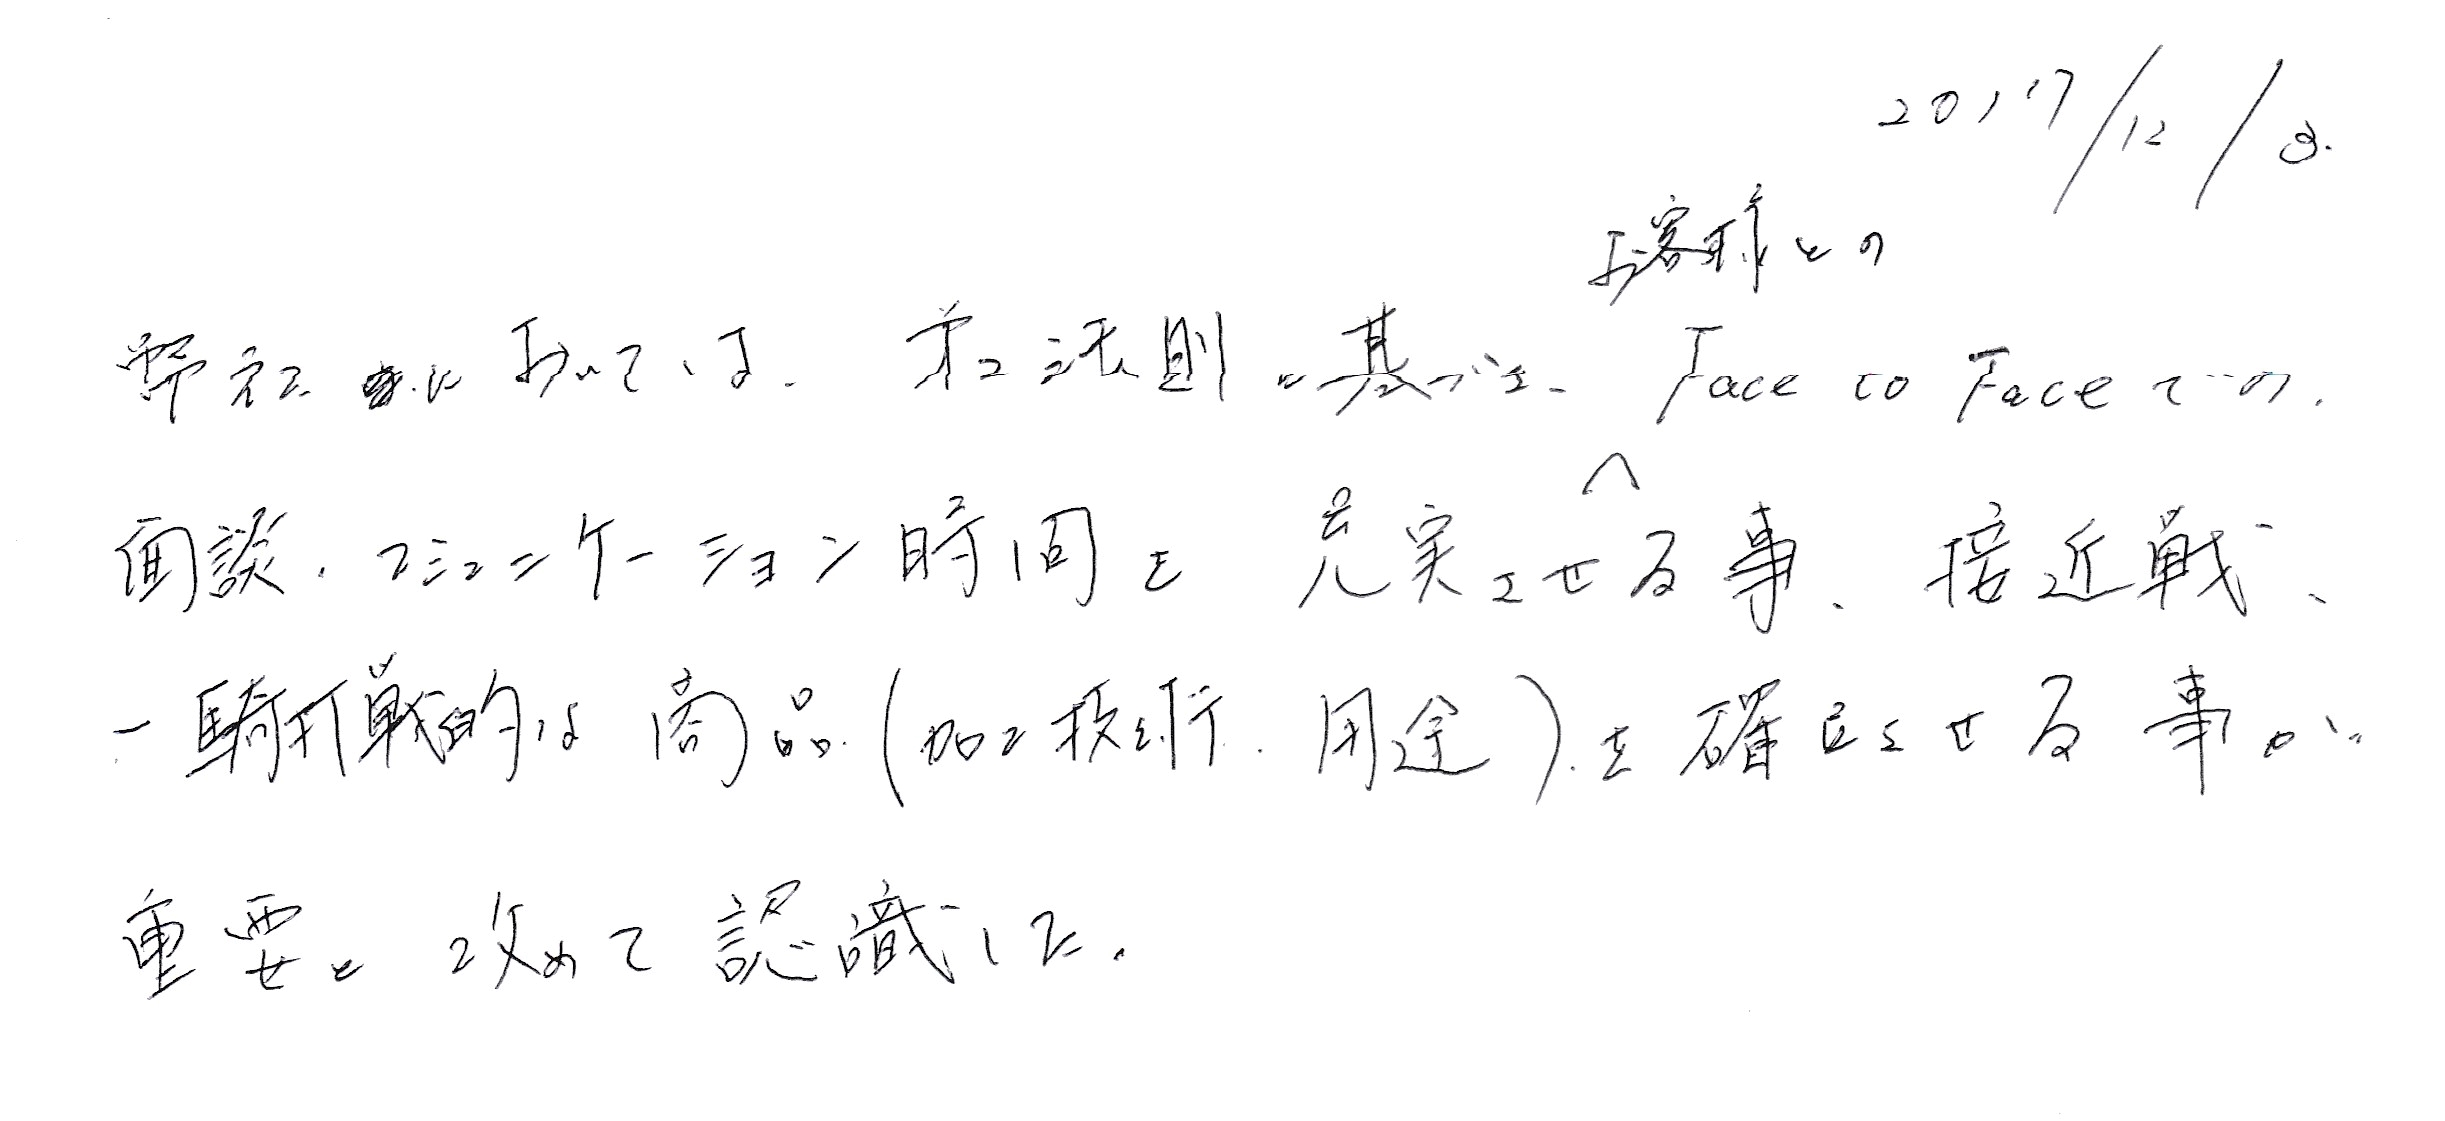 2017/12/3.
お客様との
弊社においては、第2法則に基づき、Face to Faceでの、
面談、コミュニケーション時間を充実させる事、接近戦、
一騎打戦的な商品(加工技術、用途)を確立させる事が、
重要と改めて認識した。